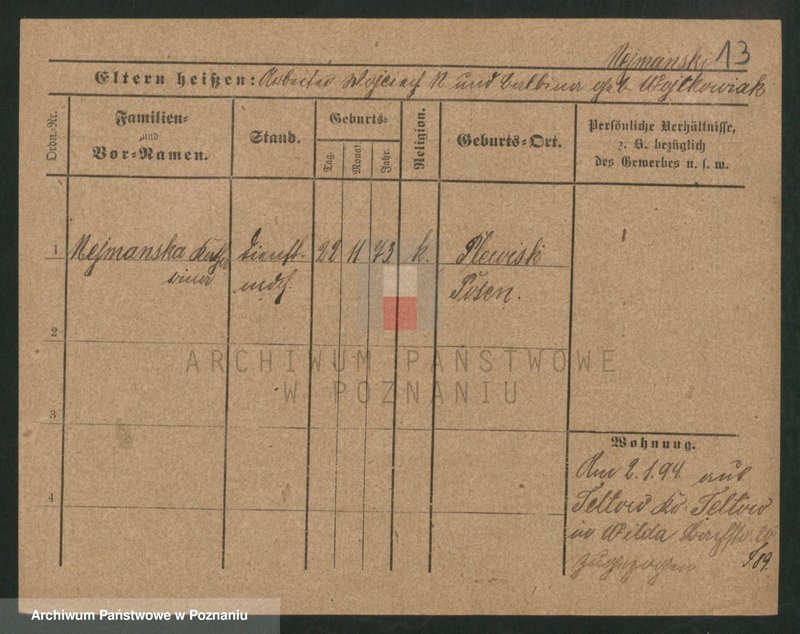 Nejmanski 13
Eltern heißen: Arbeiter Wojciech N. und Balbina geb. Wojtkowiak
Ordn.-Nr.
Familien-
und
Vor-Namen.
Stand.
Geburts-
Tag.
Monat.
Jahr.
Religion.
Geburts-Ort.
Persönliche Verhältnisse,
z. B. bezüglich
des Gewerbes u. s. w.
1 Nejmanska Dienst- 22 11 73 k.
mdch. Posen.
2
ARCHIWUM PAŃSTWOWE
W POZNANIU
3
Wohnung.
Am 2.1.94 aus
4
Teltow Kr. Teltow
in Wilda
zugezogen 89.
Archiwum Państwowe w Poznaniu